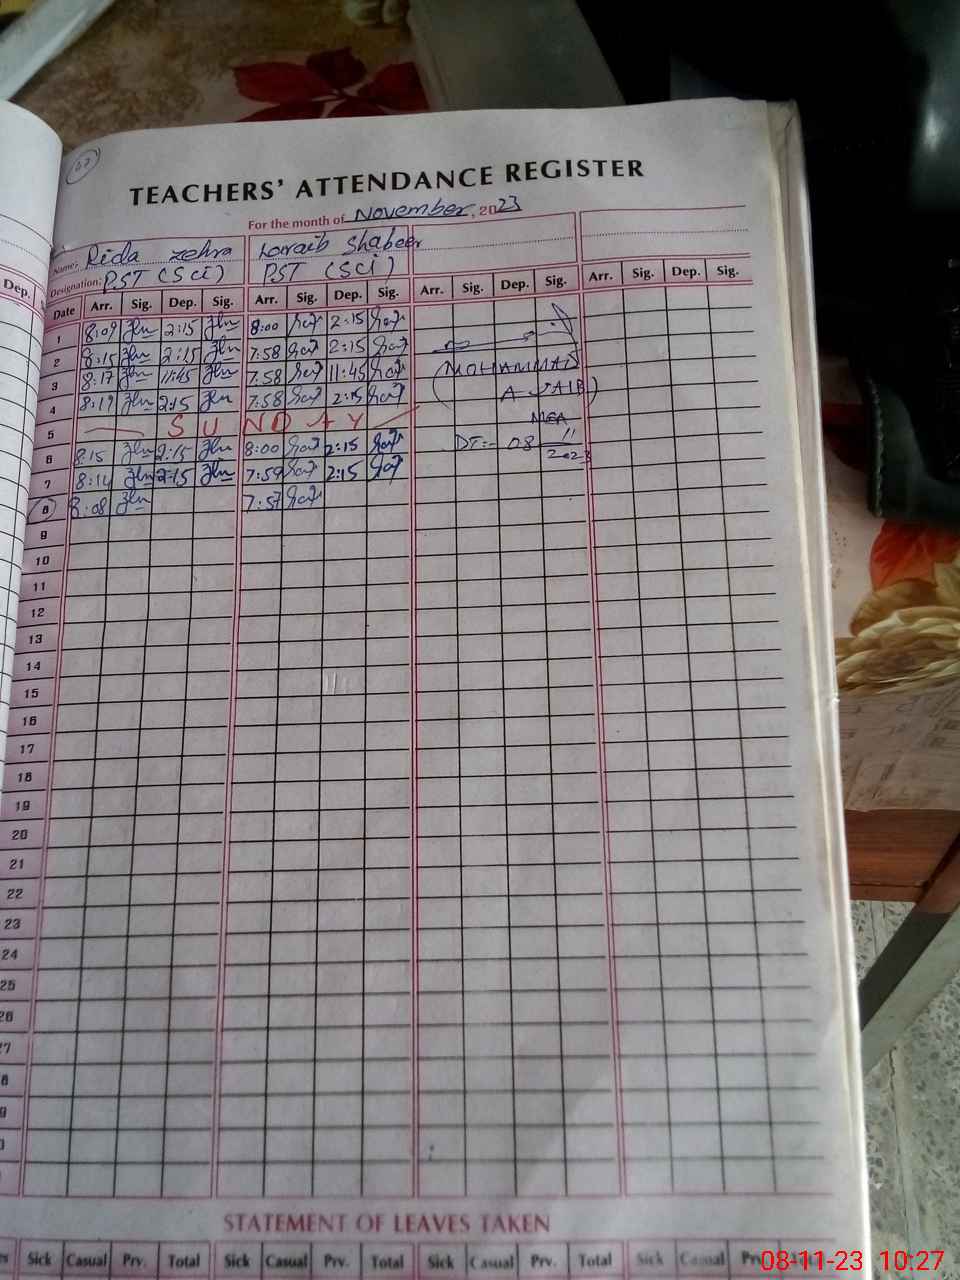 27
TEACHERS' ATTENDANCE REGISTER
For the month of November, 2023
Name: Rida zehra Laraib Shabeer
Designation: PST (SCi) PST (SCi)
Dep.
Date Arr. Sig. Dep. Sig. Arr. Sig. Dep. Sig. Arr. Sig. Dep. Sig. Arr. Sig. Dep. Sig.
1 8:09 2:15 8:00 2:15
2 8:15 2:15 7:58 2:15
3 8:17 11:45 7:58 11:45
(MOHAMMAD
4 8:19 2:15 7:58 2:15
5 SUNDAY
MEA
6 8:15 2:15 8:00 2:15
DT:- 08 11 2023
7 8:14 2:15 7:59 2:15
8 8:08 7:57
9
10
11
12
13
14
15
16
17
18
19
20
21
22
23
24
25
26
STATEMENT OF LEAVES TAKEN
Sick Casual Prv. Total Sick Casual Prv. Total Sick Casual Prv. Total Sick Casual
08-11-23 10:27